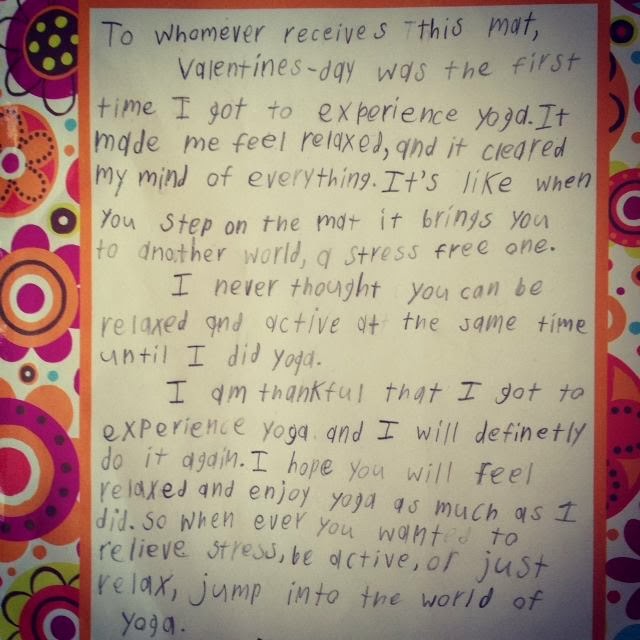 To whomever receives this mat,
Valentines-day was the first
time I got to experience yoga. It
made me feel relaxed, and it cleared
my mind of everything. It's like when
you step on the mat it brings you
to another world, a stress free one.
I never thought you can be
relaxed and active at the same time
until I did yoga.
I am thankful that I got to
experience yoga and I will definetly
do it again. I hope you will feel
relaxed and enjoy yoga as much as I
did. So when ever you wanted to
relieve stress, be active, or just
relax, jump into the world of
yoga.